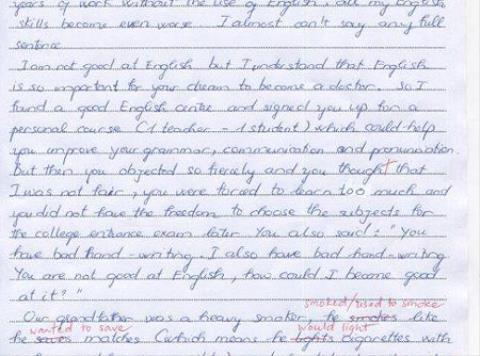 years of work without the use of English, all my English
skills become even worse. I almost can't say any full
sentence
I am not good at English but I understand that English
is so important for your dream to become a doctor. So I
found a good English centre and signed you up for a
personal course (1 teacher - 1 student) which could help
you improve your grammar, communication and pronunciation.
But then you objected so fiercely and you thought that
I was not fair, you were forced to learn too much and
you did not have the freedom to choose the subjects for
the college entrance exam later. You also said: "You
have bad hand-writing. I also have bad hand-writing
You are not good at English, how could I become good
at it?"
smoked/used to smoke
Our grandfather was a heavy smoker, he smokes like
wanted to save would light
he saves matches (which means he lights cigarettes with